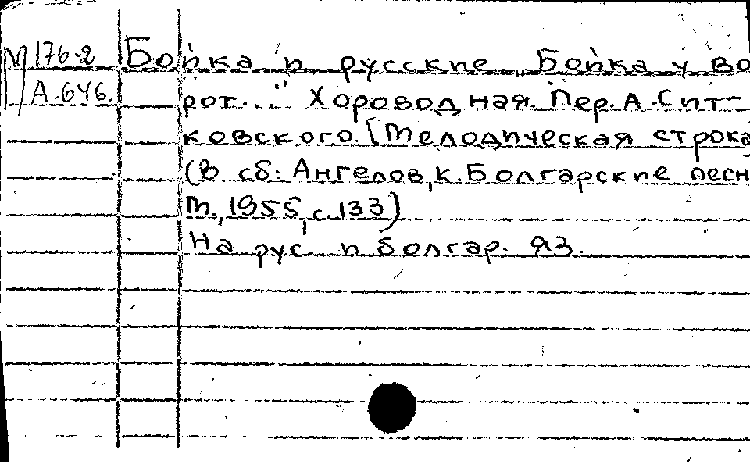 М 176-2 Бойка и русские „Бойка у во
А-646. рот..." Хороводная. Пер. А. Сит-
ковского [Мелодическая строка
(В сб: Ангелов, К. Болгарские песн
М., 1955, с. 133)
На рус. и болгар. яз.